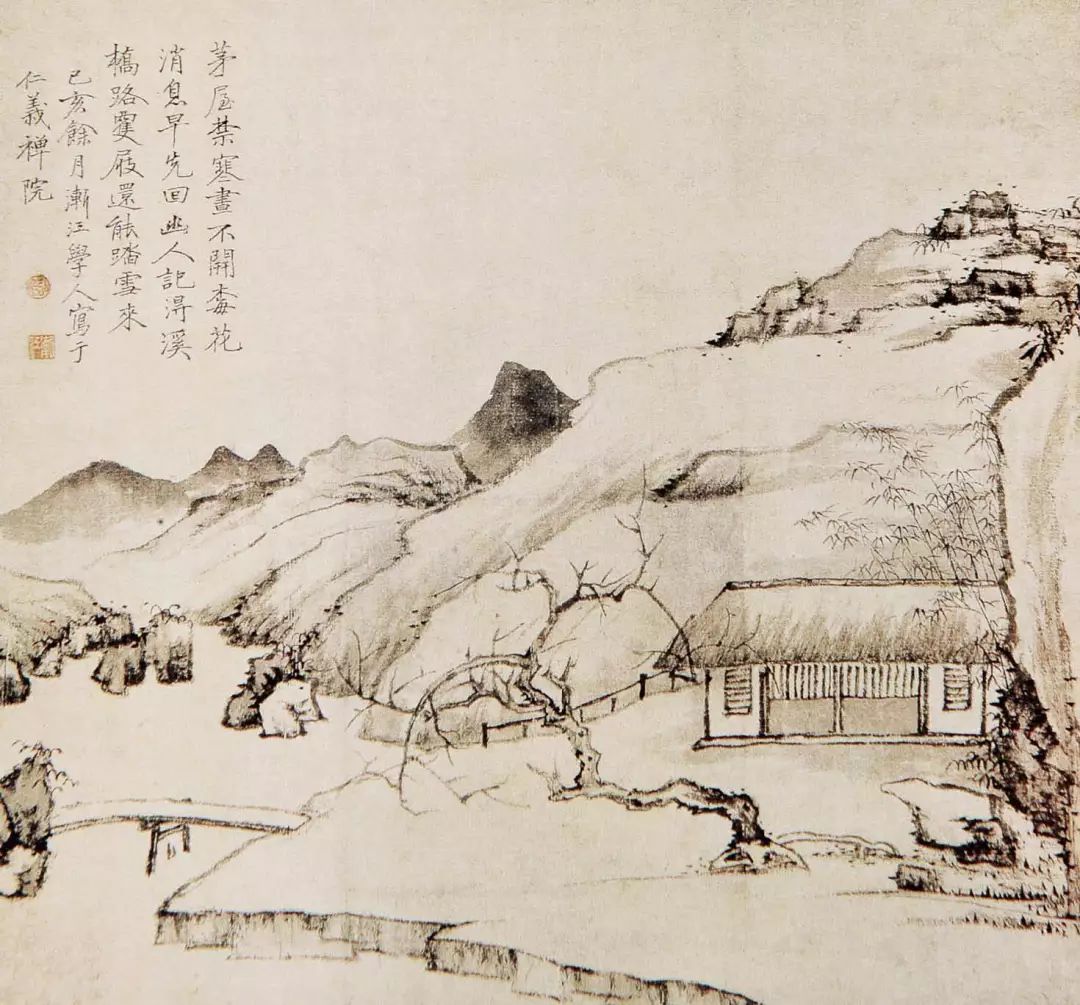 茅屋禁寒晝不開梅花
消息早先回幽人記得溪
橋路雙屐還能踏雪來
己亥餘月漸江學人寫于
仁義禪院